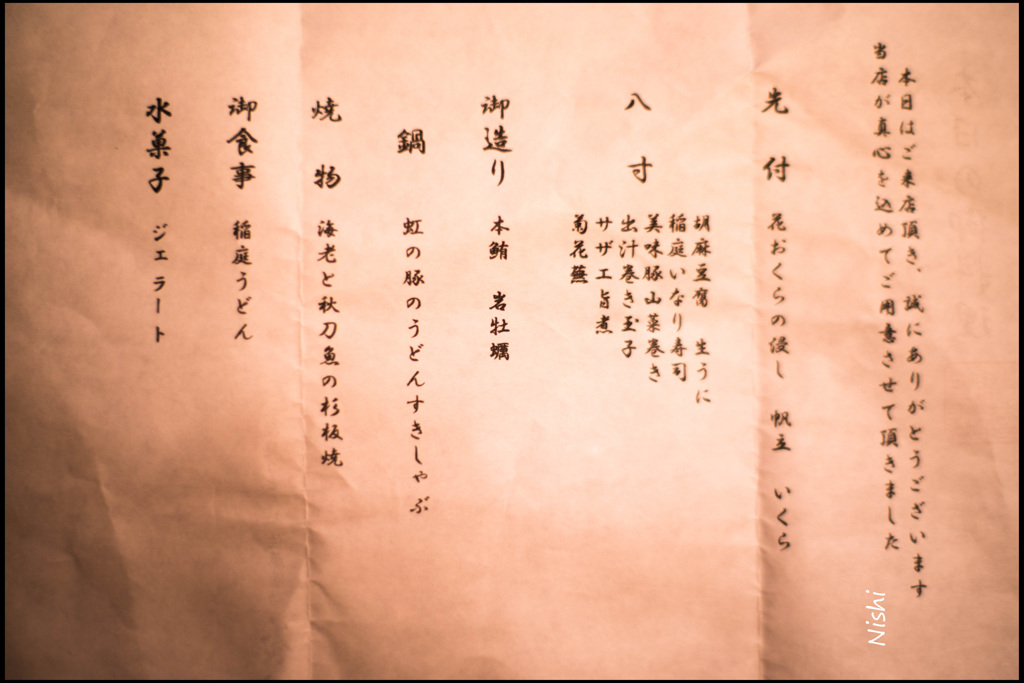 本日はご来店頂き、誠にありがとうございます
当店が真心を込めてご用意させて頂きました
先付 花おくらの浸し 帆立 いくら
八寸 胡麻豆腐 生うに
稲庭いなり寿司
美味豚山菜巻き
出汁巻き玉子
サザエ旨煮
菊花蕪
御造り 本鮪 岩牡蠣
鍋 虹の豚のうどんすきしゃぶ
焼物 海老と秋刀魚の杉板焼
御食事 稲庭うどん
水菓子 ジェラート
Nishi